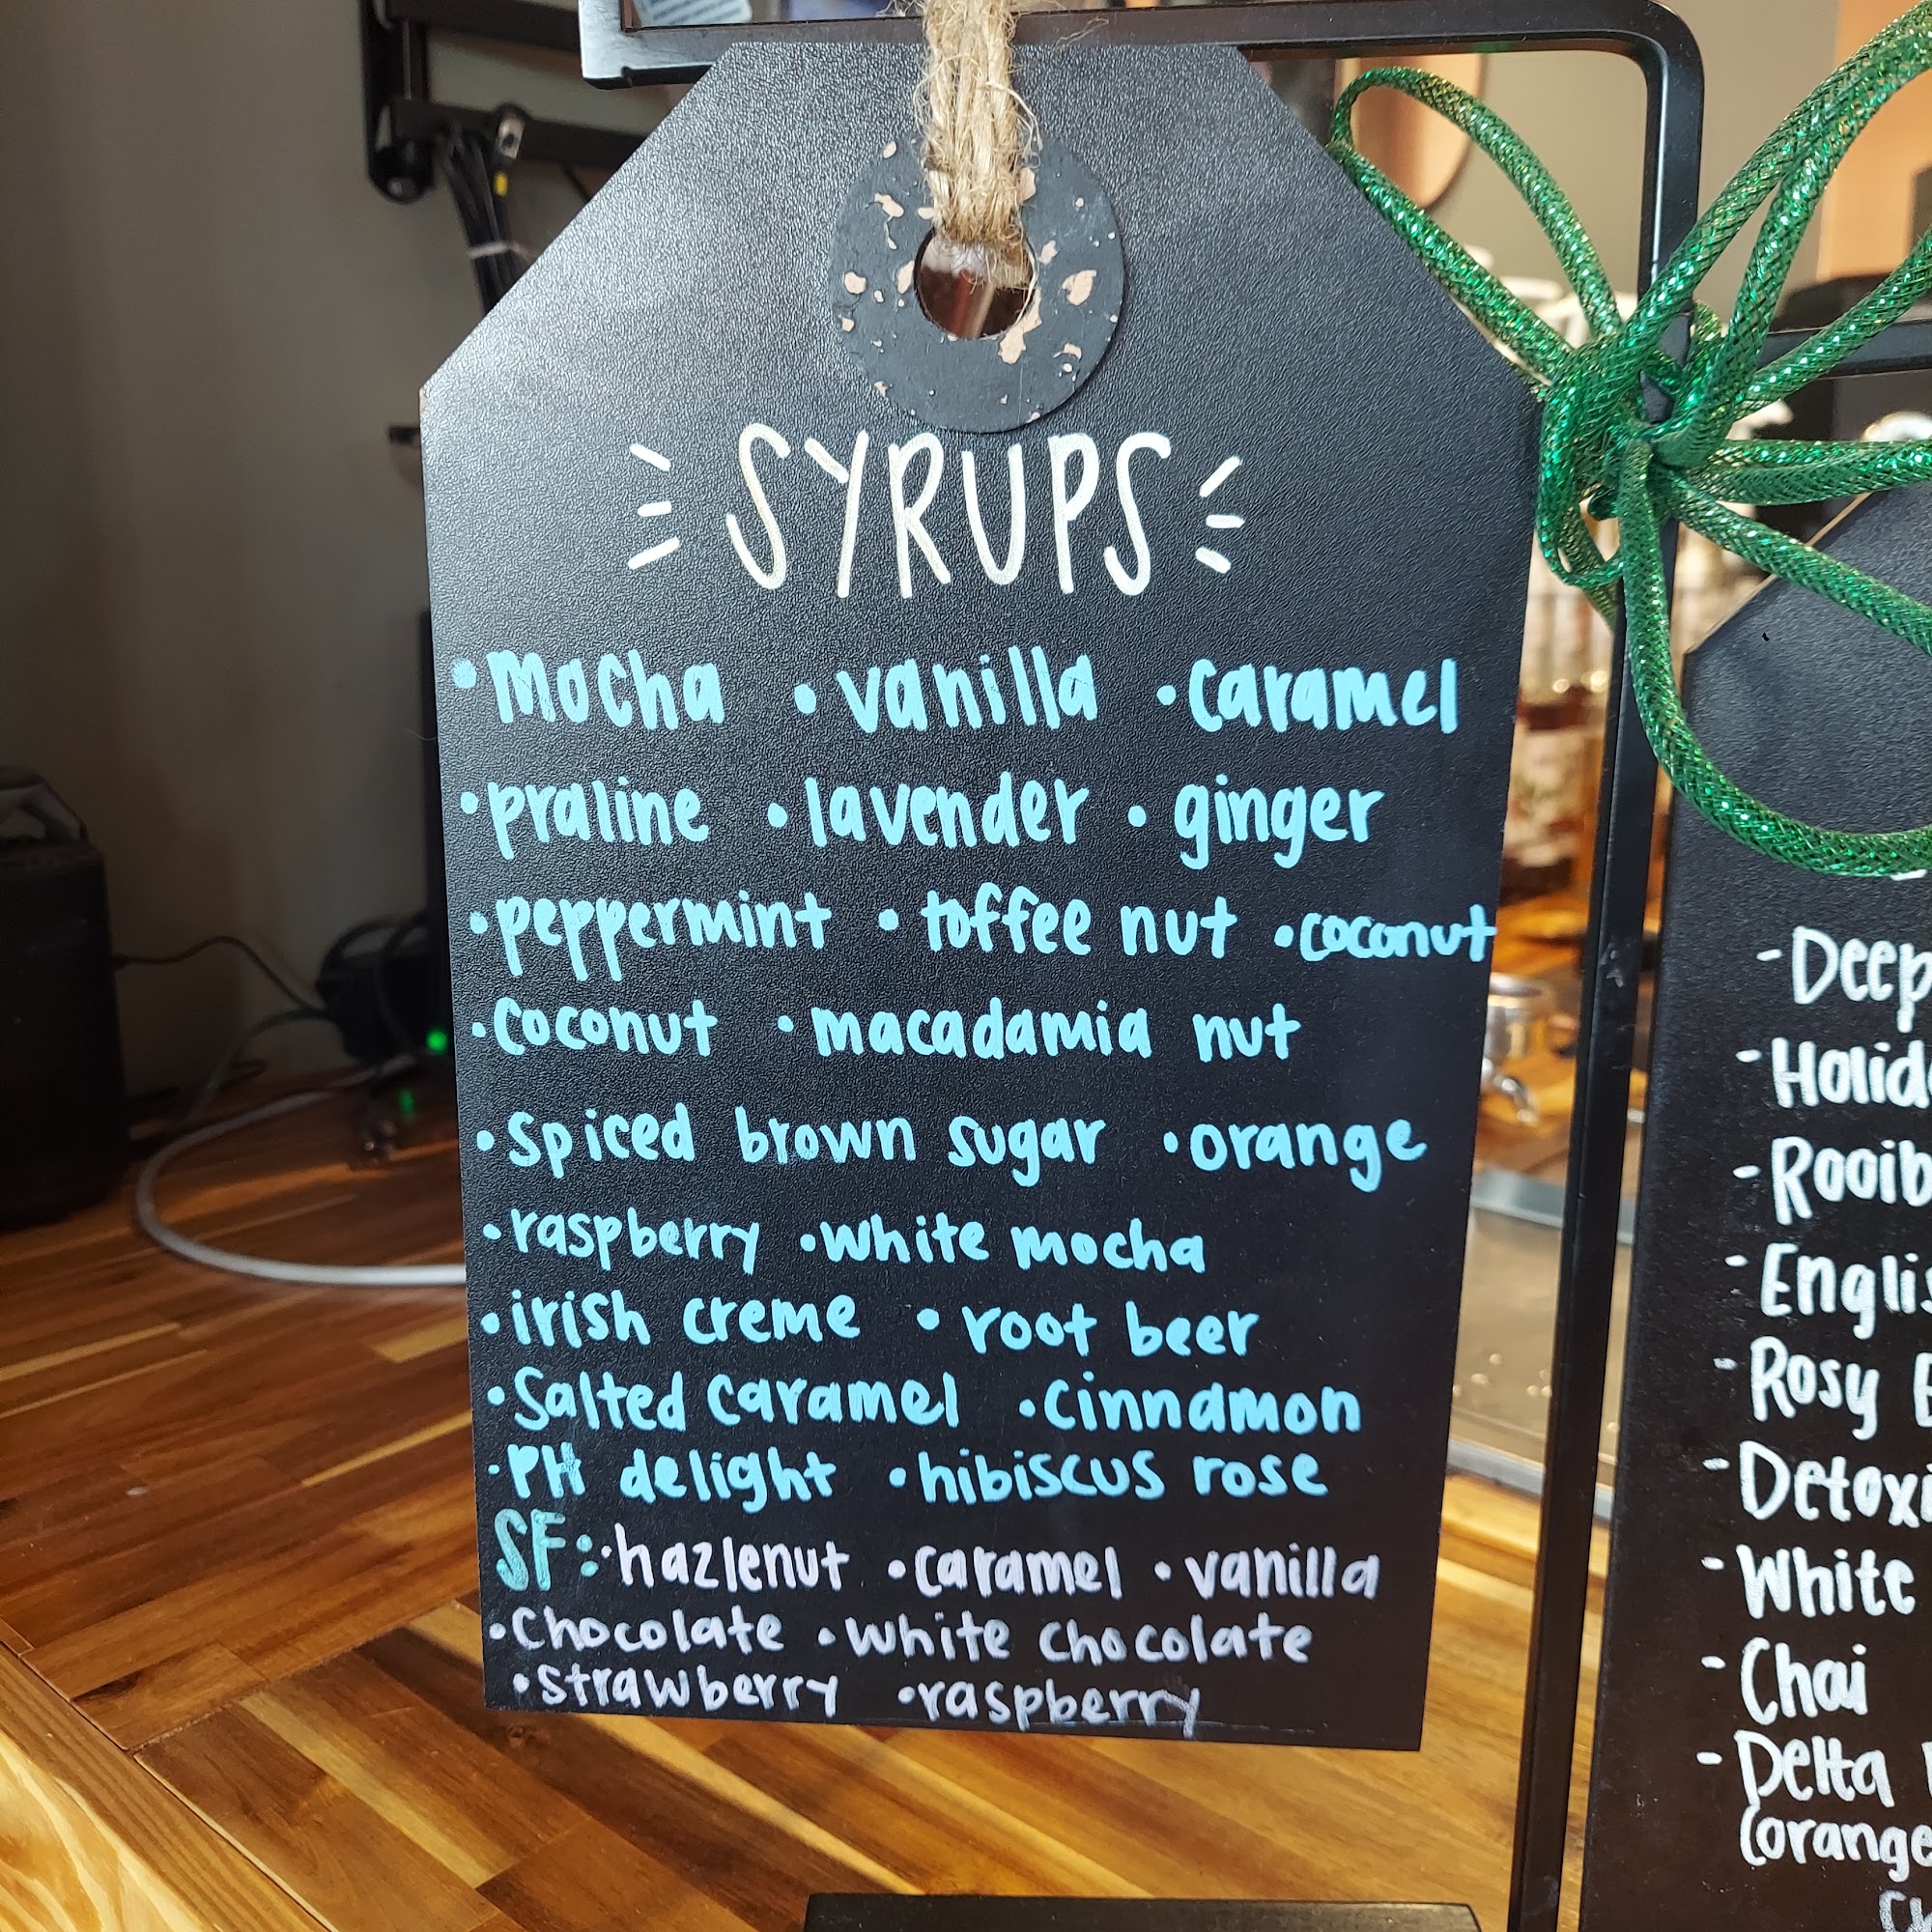 SYRUPS
• Mocha • vanilla • caramel
• praline • lavender • ginger
• peppermint • toffee nut • coconut
• Coconut • macadamia nut
• Spiced brown sugar • orange
• raspberry • white mocha
• irish creme • root beer
• Salted caramel • cinnamon
• PH delight • hibiscus rose
SF: • hazlenut • caramel • vanilla
• Chocolate • White chocolate
• strawberry • raspberry
- Deep
- Rosy
- White
- Chai
- Delta
(orange